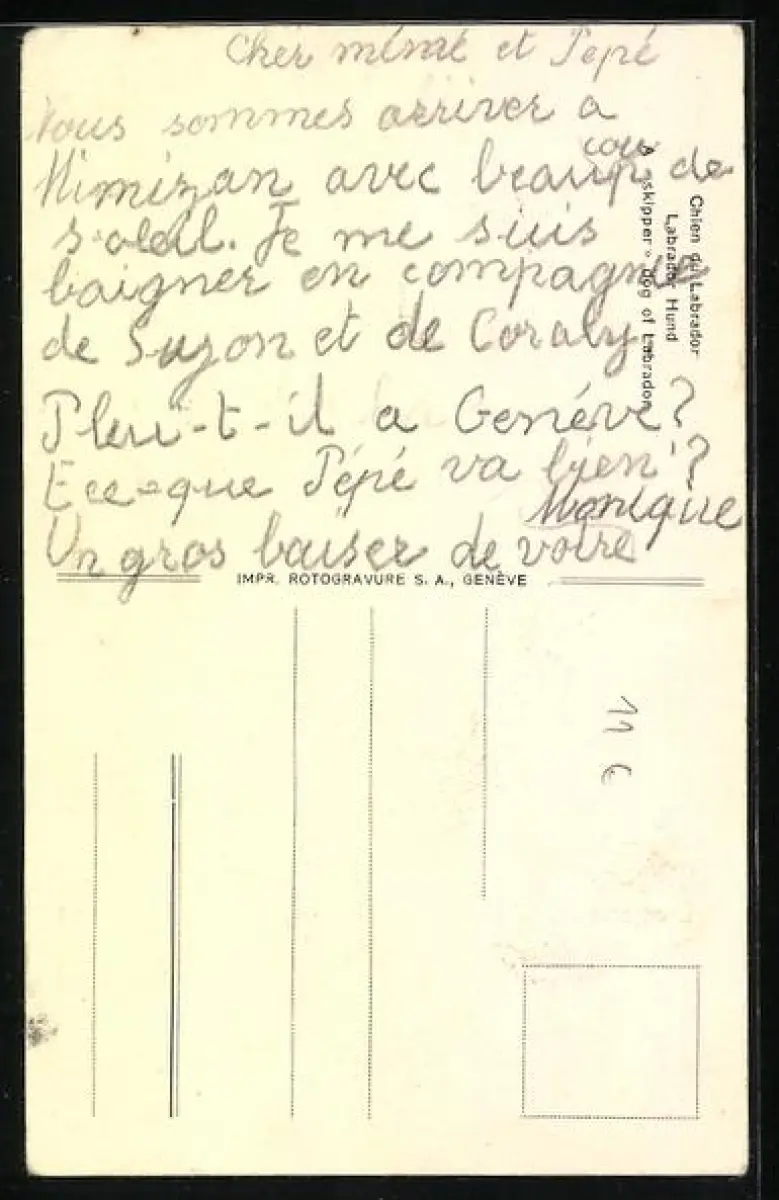 Cher mémé et Pépé
Nous sommes arriver a
Mimizan avec beaucoup de
soleil. Je me suis
baigner en compagnie
de Suzon et de Coraly
Pleu-t-il a Genéve?
Ece-que Pépé va bien?
Un gros baiser de votre
Monique
Chien du Labrador
Labrador Hund
A "skipper" dog of Labrador
IMPR. ROTOGRAVURE S. A., GENÈVE
11 €